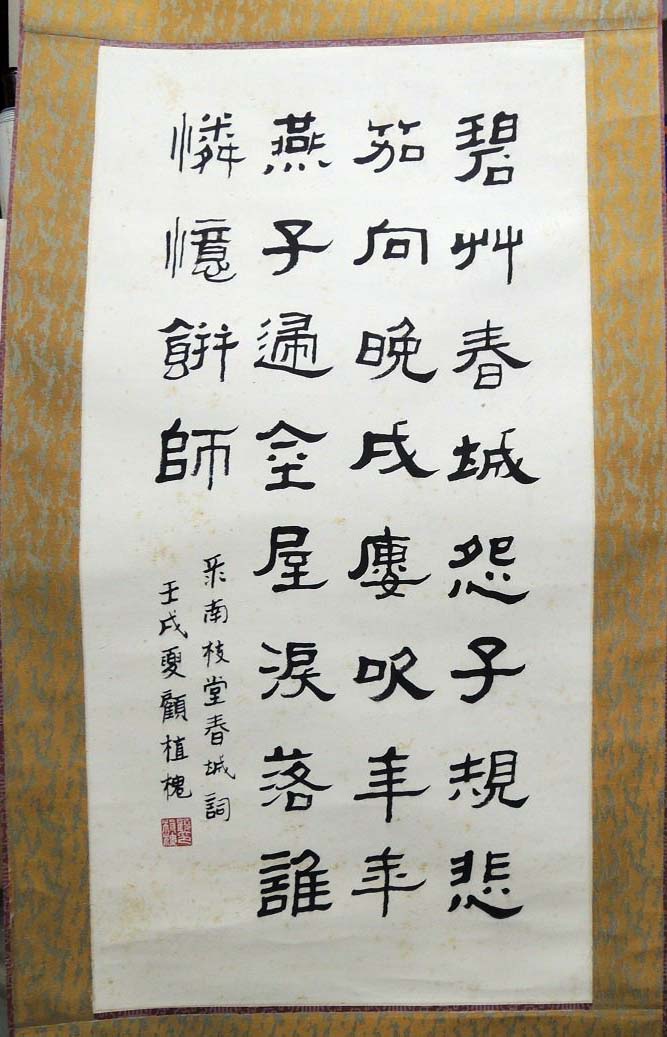 碧艸春城怨子規悲
笳向晚戍廔吹年年
燕子歸空屋淚落誰
憐憶餅師
采南枝堂春城詞
壬戌夏顧植槐